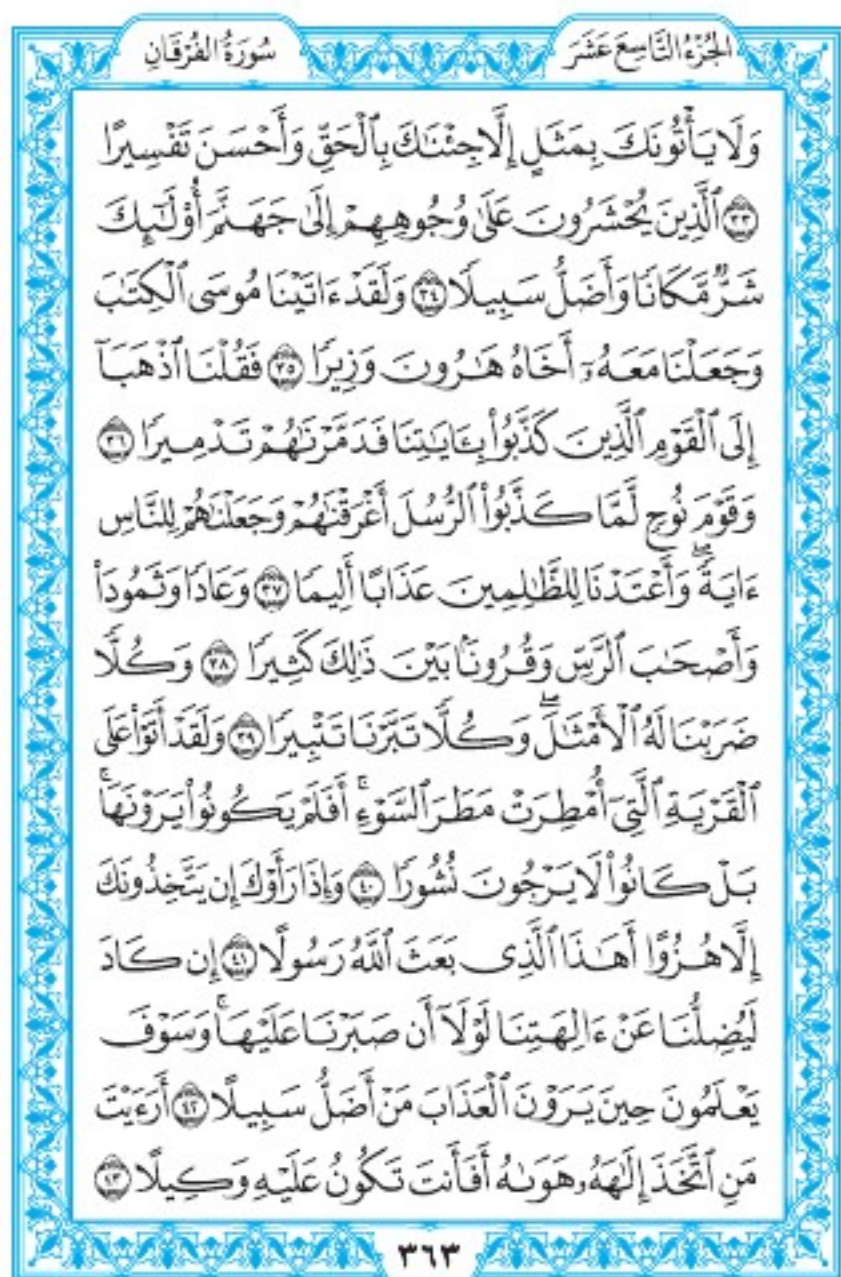 الجُزْءُ التَّاسِعَ عَشَرَ سُورَةُ الفُرْقَانِ
وَلَا يَأْتُونَكَ بِمَثَلٍ إِلَّا جِئْنَٰكَ بِٱلْحَقِّ وَأَحْسَنَ تَفْسِيرًا
٣٣ ٱلَّذِينَ يُحْشَرُونَ عَلَىٰ وُجُوهِهِمْ إِلَىٰ جَهَنَّمَ أُو۟لَٰٓئِكَ
شَرٌّ مَّكَانًا وَأَضَلُّ سَبِيلًا ٣٤ وَلَقَدْ ءَاتَيْنَا مُوسَى ٱلْكِتَٰبَ
وَجَعَلْنَا مَعَهُۥٓ أَخَاهُ هَٰرُونَ وَزِيرًا ٣٥ فَقُلْنَا ٱذْهَبَآ
إِلَى ٱلْقَوْمِ ٱلَّذِينَ كَذَّبُوا۟ بِـَٔايَٰتِنَا فَدَمَّرْنَٰهُمْ تَدْمِيرًا ٣٦
وَقَوْمَ نُوحٍ لَّمَّا كَذَّبُوا۟ ٱلرُّسُلَ أَغْرَقْنَٰهُمْ وَجَعَلْنَٰهُمْ لِلنَّاسِ
ءَايَةً ۖ وَأَعْتَدْنَا لِلظَّٰلِمِينَ عَذَابًا أَلِيمًا ٣٧ وَعَادًا وَثَمُودَا۟
وَأَصْحَٰبَ ٱلرَّسِّ وَقُرُونًۢا بَيْنَ ذَٰلِكَ كَثِيرًا ٣٨ وَكُلًّا
ضَرَبْنَا لَهُ ٱلْأَمْثَٰلَ ۖ وَكُلًّا تَبَّرْنَا تَتْبِيرًا ٣٩ وَلَقَدْ أَتَوْا۟ عَلَى
ٱلْقَرْيَةِ ٱلَّتِىٓ أُمْطِرَتْ مَطَرَ ٱلسَّوْءِ ۚ أَفَلَمْ يَكُونُوا۟ يَرَوْنَهَا ۚ
بَلْ كَانُوا۟ لَا يَرْجُونَ نُشُورًا ٤٠ وَإِذَا رَأَوْكَ إِن يَتَّخِذُونَكَ
إِلَّا هُزُوًا أَهَٰذَا ٱلَّذِى بَعَثَ ٱللَّهُ رَسُولًا ٤١ إِن كَادَ
لَيُضِلُّنَا عَنْ ءَالِهَتِنَا لَوْلَآ أَن صَبَرْنَا عَلَيْهَا ۚ وَسَوْفَ
يَعْلَمُونَ حِينَ يَرَوْنَ ٱلْعَذَابَ مَنْ أَضَلُّ سَبِيلًا ٤٢ أَرَءَيْتَ
مَنِ ٱتَّخَذَ إِلَٰهَهُۥ هَوَىٰهُ أَفَأَنتَ تَكُونُ عَلَيْهِ وَكِيلًا ٤٣
٣٦٣